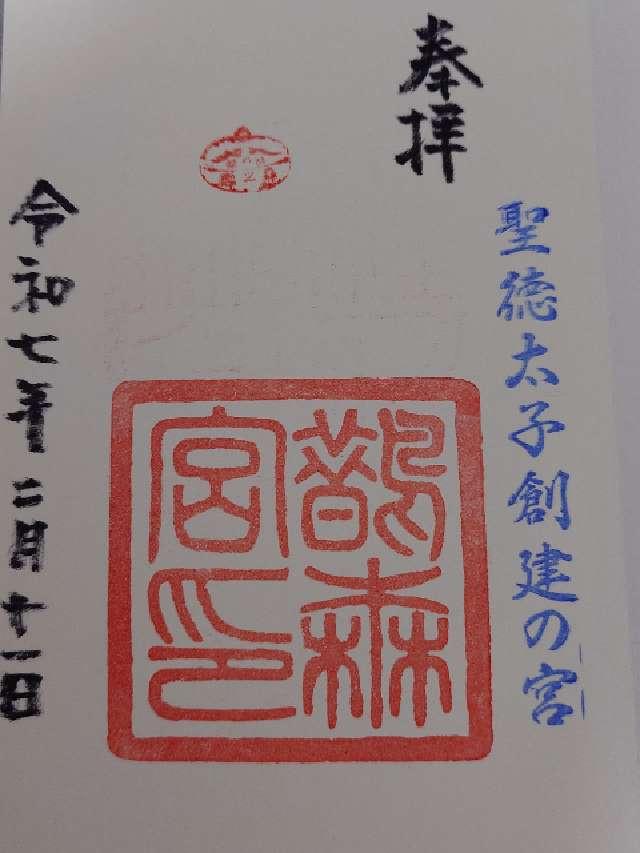 奉拝
聖徳太子創建の宮
鵲森
宮印
令和七年二月十一日